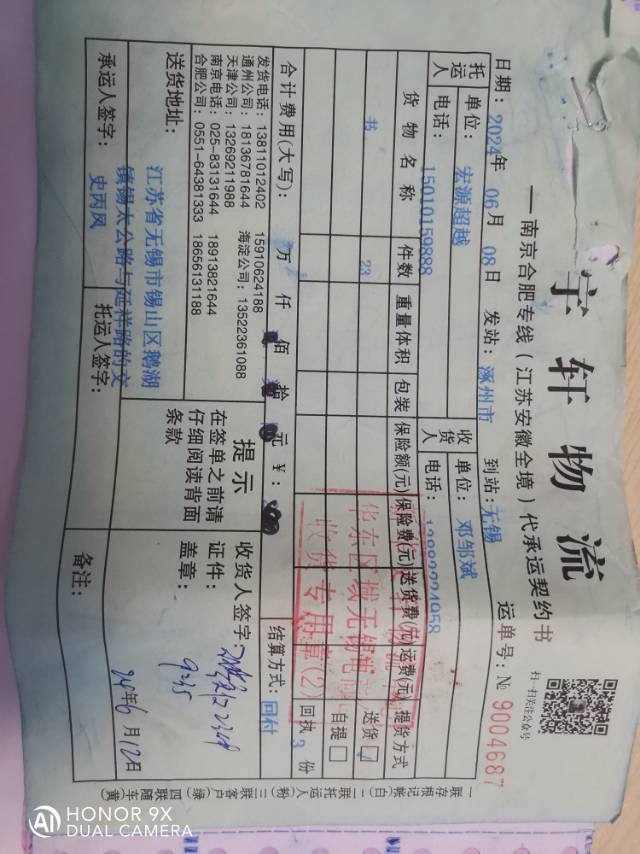 宇轩物流
—南京合肥专线（江苏安徽全境）代承运契约书
扫一扫关注公众号
日期：2024年 06月 08日 发站：涿州市 到站：无锡 运单号：№ 9004687
托运人 单位：宏源超越 收货人 单位：邓邹斌
电话：15010159888 电话：
货物名称 件数 重量体积 包装 保险额(元) 保险费(元) 送货费(元) 运费(元) 提货方式
书 23 送货
自提
华东区域无锡
收货专用章(2)
回执 3 份
合计费用(大写)： 万 仟 佰 拾 元 ¥： 结算方式：回付
发货电话：13811012402 15910624188
通州公司：18136781644 海淀公司：13522361088
天津公司：13269211988
南京电话：025-83131644 18913821644
合肥公司：0551-64381333 18656131188
提示
在签单之前请
仔细阅读背面
条款
收货人签字
证件：
盖章：
9:35
24年6月12日
送货地址：江苏省无锡市锡山区鹅湖
镇锡太公路与延祥路的交
承运人签字：史丙凤 托运人签字： 备注：
一联存根记帐(白) 二联托运人(粉) 三联客户(绿) 四联随车(黄)
HONOR 9X
AI DUAL CAMERA